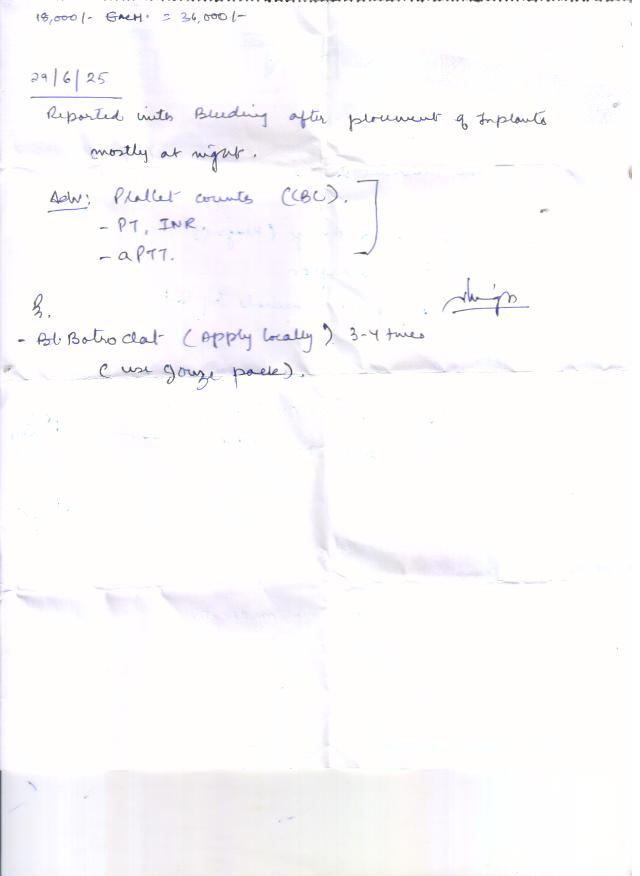 18,000/- EACH. = 36,000/-
29/6/25
Reported with Bleeding after placement of Implants
mostly at night.
Adv: Platlet counts (CBC).
- PT, INR.
- aPTT.
- Bt. Botroclot (Apply locally) 3-4 times
( use gauze pack).